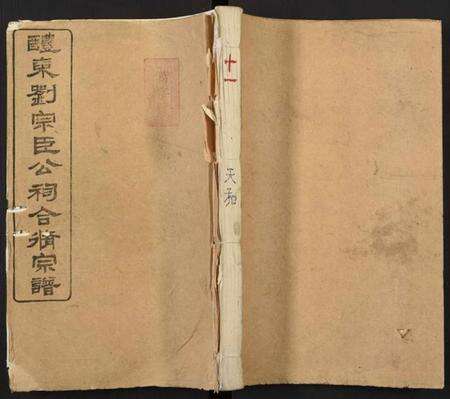 醴東劉宗臣公祠合修宗譜
十一
天和